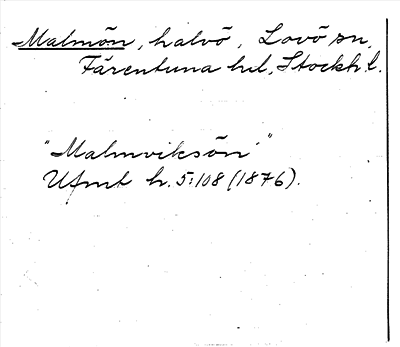 Malmön, halvö, Lovö sn,
Färentuna hd, Stockh l.
"Malmviksön"
Ufmt h. 5:108 (1876).